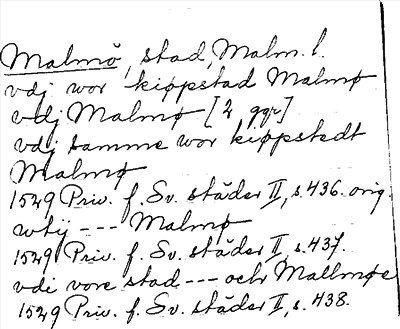 Malmö, stad, Malm. l.
vdj wor kiøpstad Malmø
vdj Malmø [2 ggr]
vdj samme wor kiøpstedt
Malmø
1529 Priv. f. Sv. städer II, s. 436. orig.
wtij --- Malmø
1529 Priv. f. Sv. städer II, s. 437.
vdi vore stad --- och Mallmøe
1529 Priv. f. Sv. städer II, s. 438.